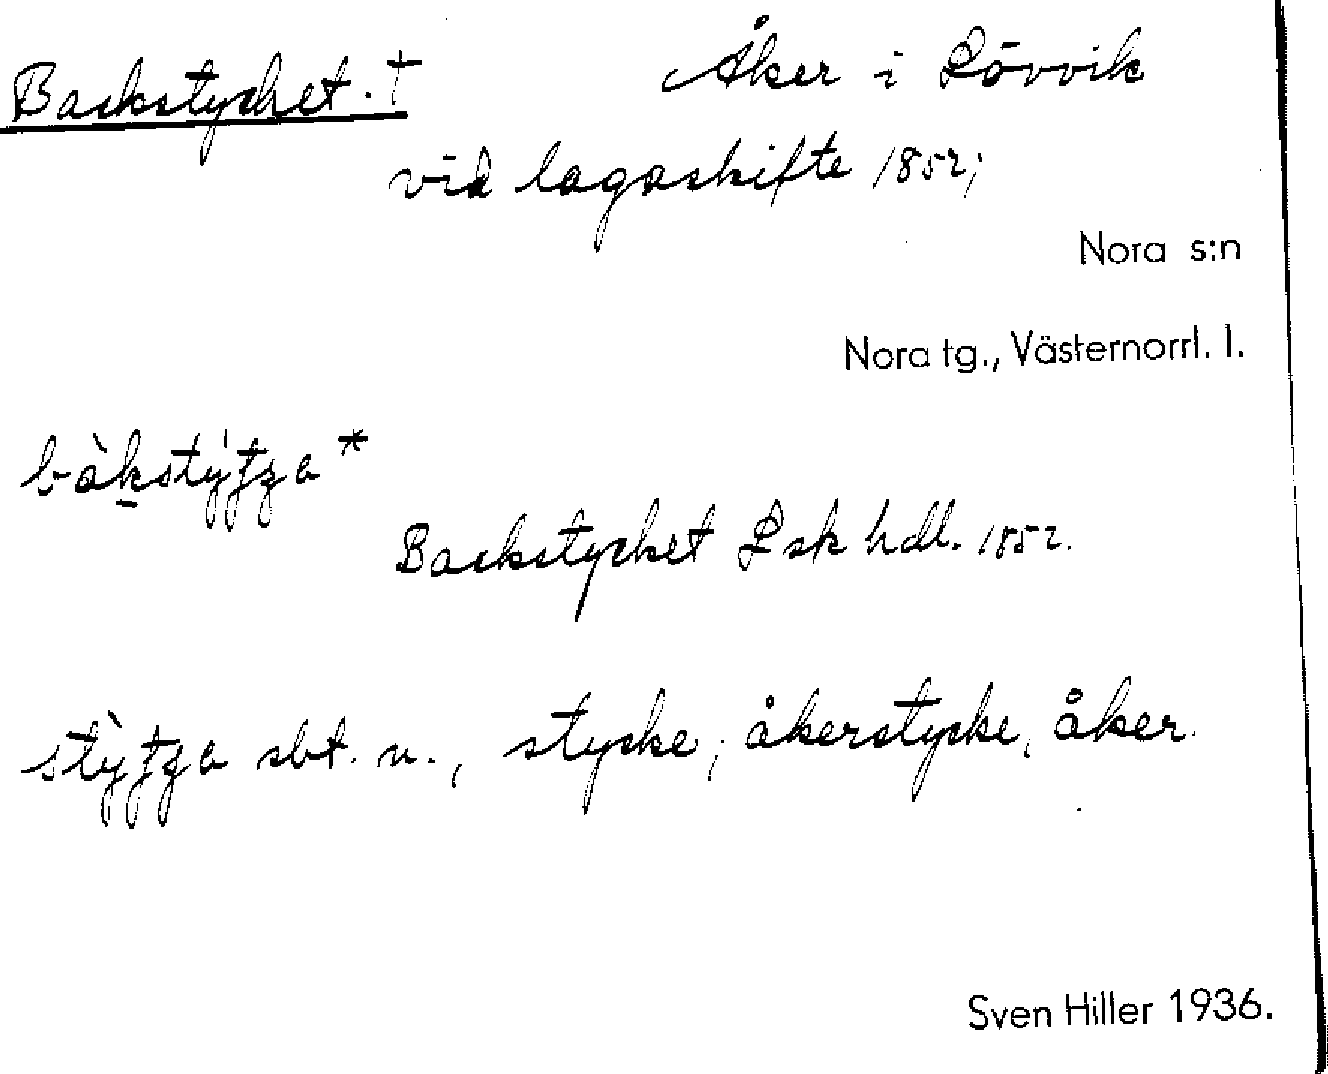 Backstycket. † Åker i Lövvik
vid lagaskifte 1852;
Nora s:n
Nora tg., Västernorrl. l.
Backstycket Lsk hdl. 1852.
sbt. n., stycke; åkerstycke, åker.
Sven Hiller 1936.